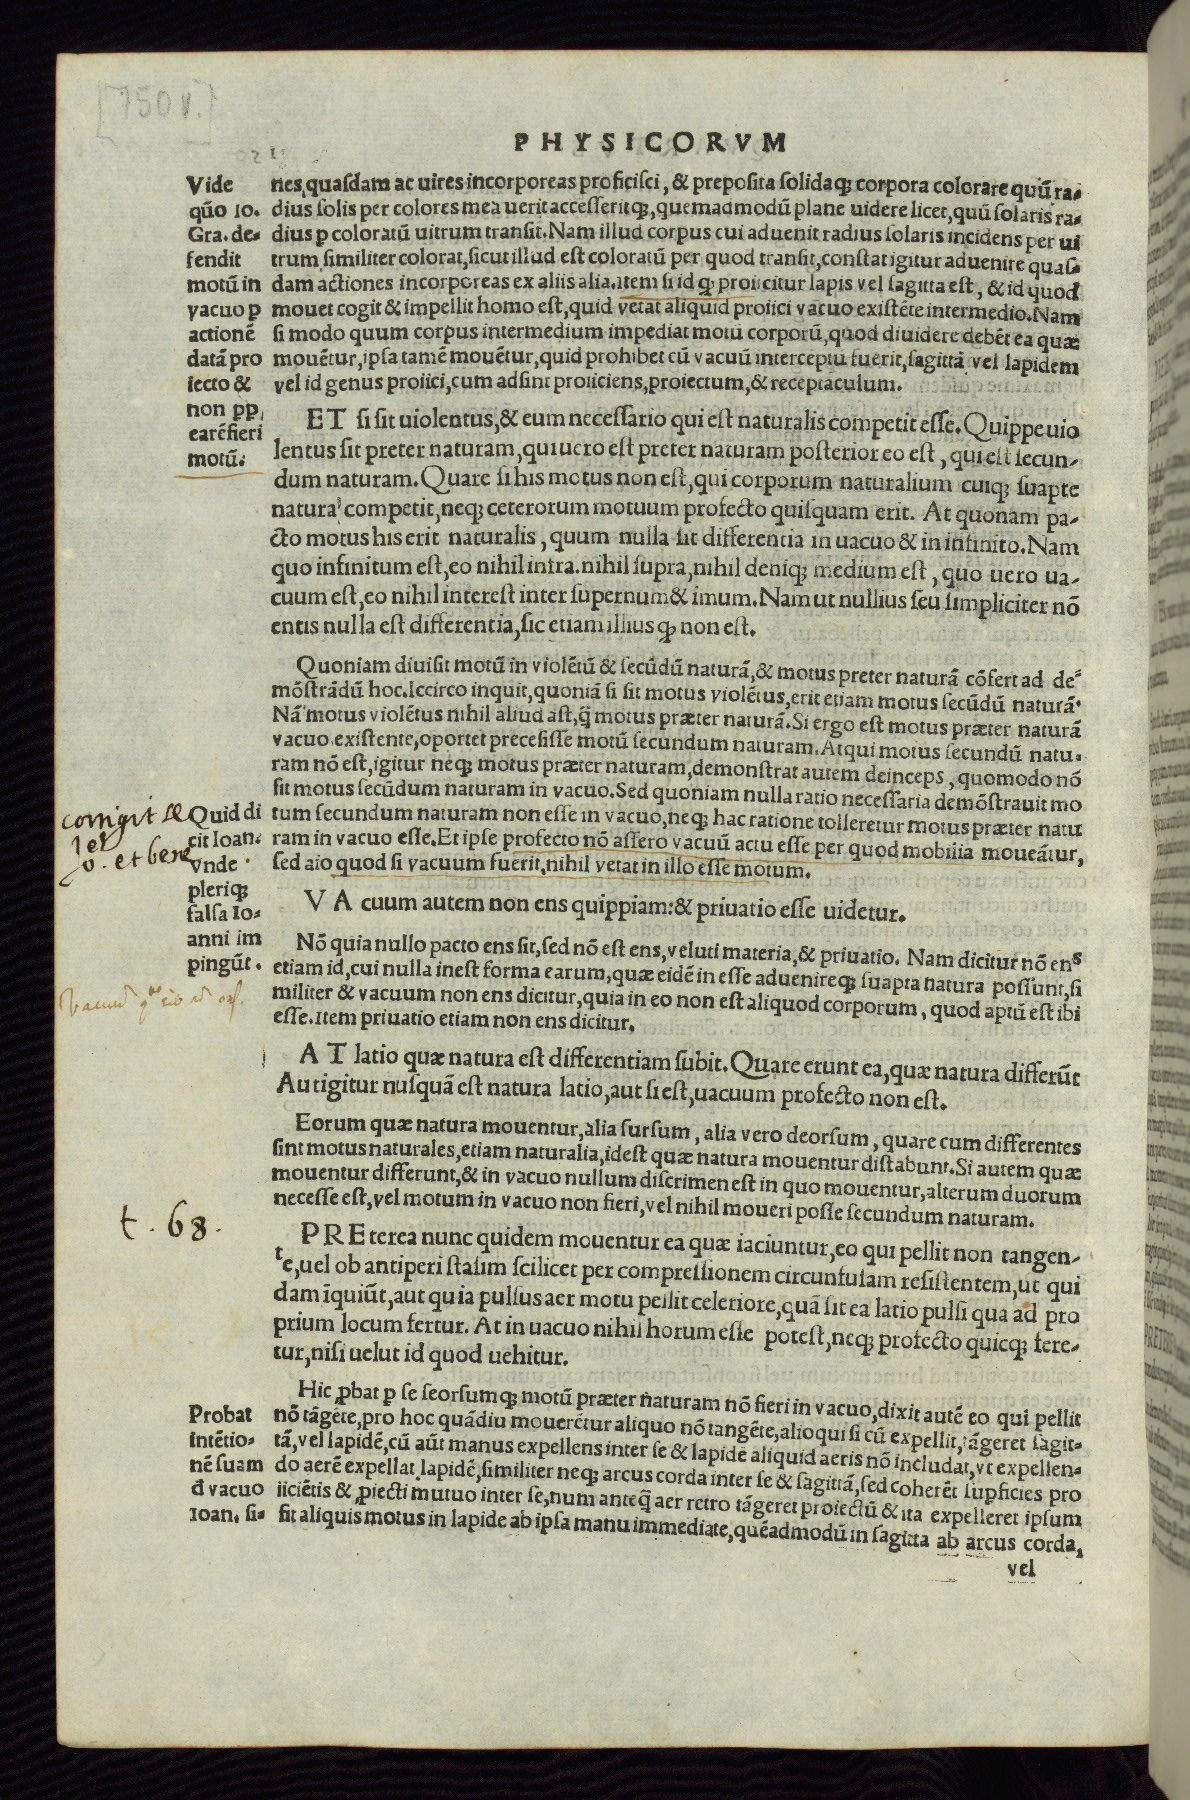 [750 v.]
PHYSICORVM
Vide
quõ 10.
Gra. de-
fendit
motũ in
vacuo p
actionẽ
datã pro
iecto &
non pp,
earẽ fieri
motũ.
nes,quasdam ac uires incorporeas proficisci, & preposita solidaq; corpora colorare quũ ra-
dius solis per colores mea uerit accesseritq;, quemadmodũ plane uidere licet, quũ solaris ra-
dius p coloratũ uitrum transit. Nam illud corpus cui aduenit radius solaris incidens per ui
trum, similiter colorat, sicut illud est coloratũ per quod transit, constat igitur aduenire quas-
dam actiones incorporeas ex aliis alia. item si id q; proiicitur lapis vel sagitta est, & id quod
mouet cogit & impellit homo est, quid vetat aliquid proiici vacuo existẽte intermedio. Nam
si modo quum corpus intermedium impediat motũ corporũ, quod diuidere debẽt ea quæ
mouẽtur, ipsa tamẽ mouẽtur, quid prohibet cũ vacuũ interceptũ fuerit, sagittã vel lapidem
vel id genus proiici, cum adsint proiiciens, proiectum, & receptaculum.
ET si sit uiolentus, & eum necessario qui est naturalis competit esse. Quippe uio
lentus sit preter naturam, qui uero est preter naturam posterior eo est, qui est secun-
dum naturam. Quare si his motus non est, qui corporum naturalium cuiq; suapte
natura competit, neq; ceterorum motuum profecto quisquam erit. At quonam pa-
cto motus his erit naturalis, quum nulla sit differentia in uacuo & in infinito. Nam
quo infinitum est, eo nihil infra. nihil supra, nihil deniq; medium est, quo uero ua-
cuum est, eo nihil interest inter supernum & imum. Nam ut nullius seu simpliciter nõ
entis nulla est differentia, sic etiam illius q; non est.
Quoniam diuisit motũ in violẽtũ & secũdũ naturã, & motus preter naturã cõfert ad de
mõstrãdũ hoc. Iccirco inquit, quoniã si sit motus violẽtus, erit etiam motus secũdũ naturã.
Nã motus violẽtus nihil aliud ast, q̃ motus præter naturã. Si ergo est motus præter naturã
vacuo existente, oportet precesisse motũ secundum naturam. Atqui motus secundũ natu-
ram nõ est, igitur neq; motus præter naturam, demonstrat autem deinceps, quomodo nõ
sit motus secũdum naturam in vacuo. Sed quoniam nulla ratio necessaria demõstrauit mo
tum secundum naturam non esse in vacuo, neq; hac ratione tolleretur motus præter natu
ram in vacuo esse. Et ipse profecto nõ assero vacuũ actu esse per quod mobilia moueãtur,
sed aio quod si vacuum fuerit, nihil vetat in illo esse motum.
corrigit
v. et bene
Quid di
cit Ioan.
Vnde
pleriq;
falsa Io-
anni im
pingũt.
VA cuum autem non ens quippiam: & priuatio esse uidetur.
Nõ quia nullo pacto ens sit, sed nõ est ens, veluti materia, & priuatio. Nam dicitur nõ ens
etiam id, cui nulla inest forma earum, quæ eidẽ in esse aduenireq; suapta natura possunt, si
militer & vacuum non ens dicitur, quia in eo non est aliquod corporum, quod aptũ est ibi
esse. item priuatio etiam non ens dicitur.
AT latio quæ natura est differentiam subit. Quare erunt ea, quæ natura differũt
Aut igitur nusquã est natura latio, aut si est, uacuum profecto non est.
Eorum quæ natura mouentur, alia sursum, alia vero deorsum, quare cum differentes
sint motus naturales, etiam naturalia, idest quæ natura mouentur distabunt. Si autem quæ
mouentur differunt, & in vacuo nullum discrimen est in quo mouentur, alterum duorum
necesse est, vel motum in vacuo non fieri, vel nihil moueri posse secundum naturam.
t. 68.
PREterea nunc quidem mouentur ea quæ iaciuntur, eo qui pellit non tangen-
te, uel ob antiperistasim scilicet per compressionem circunfusam resistentem, ut qui
dam ĩquiũt, aut quia pulsus aer motu pellit celeriore, quã sit ea latio pulsi qua ad pro
prium locum fertur. At in uacuo nihil horum esse potest, neq; profecto quicq; fere-
tur, nisi uelut id quod uehitur.
Probat
intẽtio-
nẽ suam
đ vacuo
Ioan. si-
Hic ꝓbat p se seorsumq; motũ præter naturam nõ fieri in vacuo, dixit autẽ eo qui pellit
nõ tãgẽte, pro hoc quãdiu mouerẽtur aliquo nõ tangẽte, alioqui si cũ expellit, tãgeret sagit-
tã, vel lapidẽ, cũ aũt manus expellens inter se & lapidẽ aliquid aeris nõ includat, vt expellen-
do aerẽ expellat lapidẽ, similiter neq; arcus corda inter se & sagittã, sed coherẽt supficies pro
iiciẽtis & ꝓiecti mutuo inter se, num anteq̃ aer retro tãgeret proiectũ & ita expelleret ipsum
fit aliquis motus in lapide ab ipsa manu immediate, quẽadmodũ in sagitta ab arcus corda,
vel